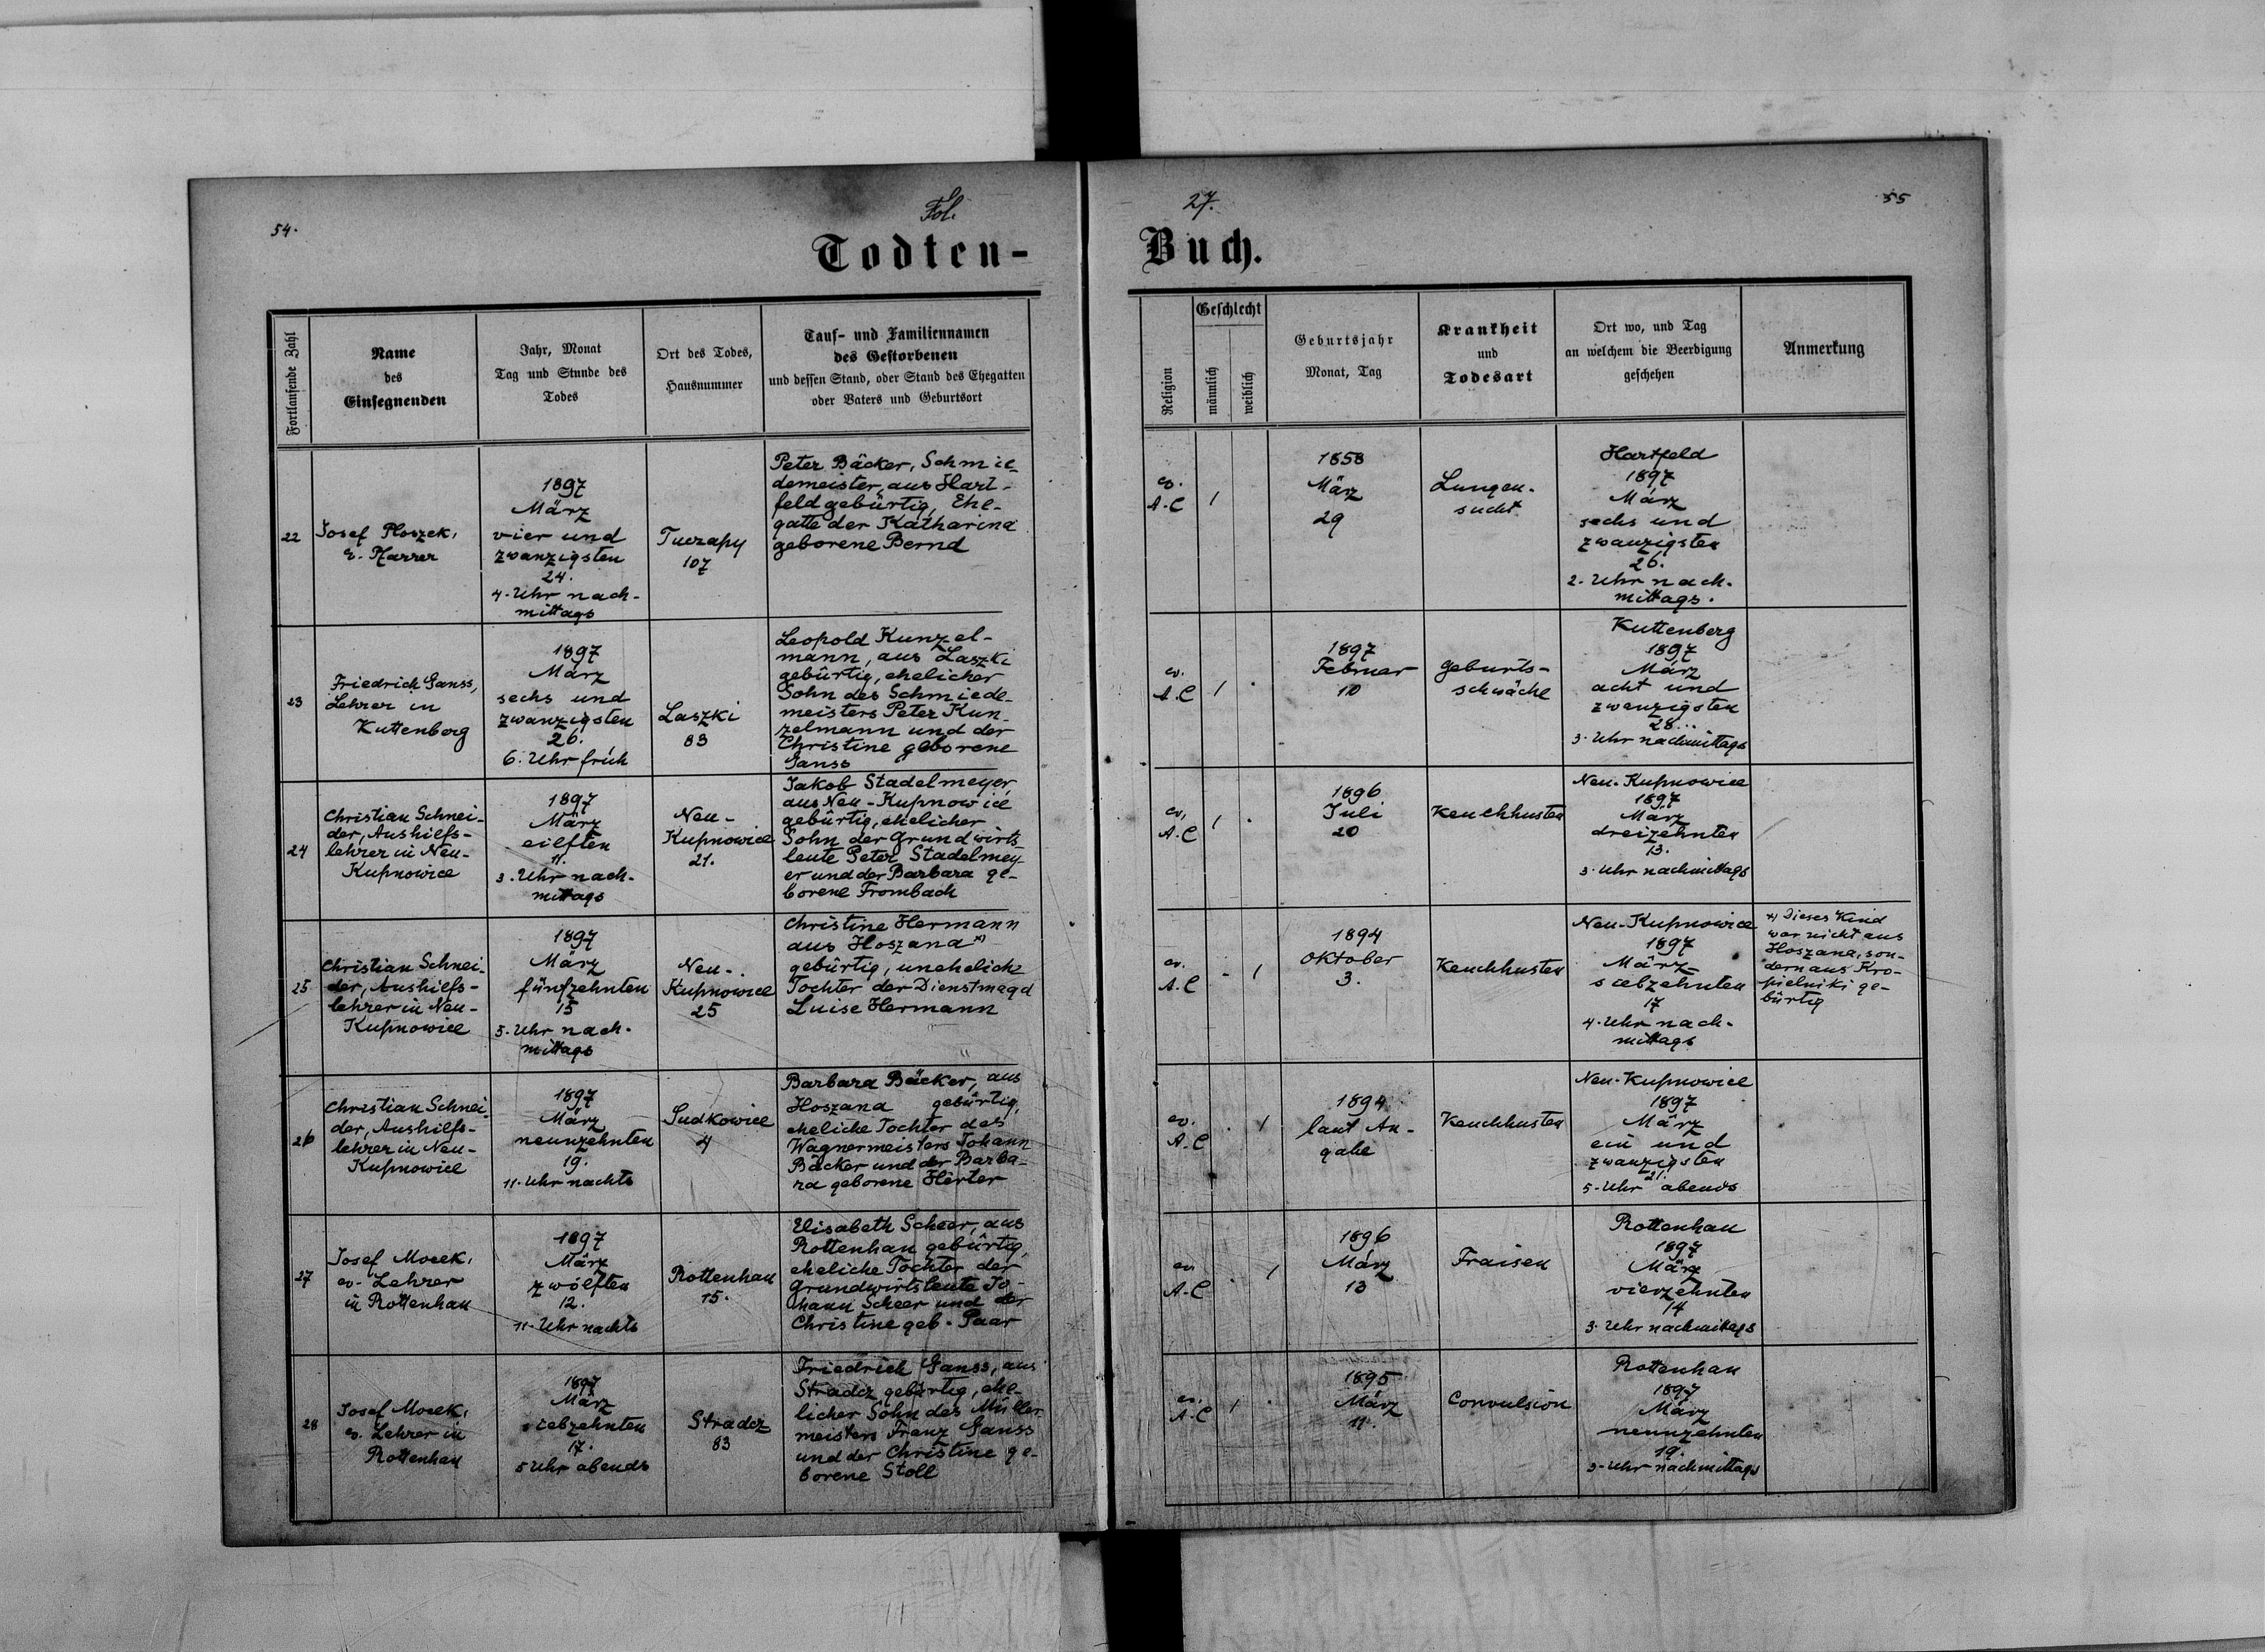 54.
Fol.
27.
55
Todten-
Buch.
Fortlaufende Zahl
Name
des
Einsegnenden
Jahr, Monat
Tag und Stunde des
Todes
Ort des Todes,
Hausnummer
Tauf- und Familiennamen
des Gestorbenen
und dessen Stand, oder Stand des Ehegatten
oder Vaters und Geburtsort
Religion
Geschlecht
männlich
weiblich
Geburtsjahr
Monat, Tag
Krankheit
und
Todesart
Ort wo, und Tag
an welchem die Beerdigung
geschehen
Anmerkung
22
Josef Ploszek,
ev. Pfarrer
1897
März
vier und
zwanzigsten
24.
4. Uhr nach-
mittags
Tuczapy
107
Peter Bäcker, Schmie-
demeister, aus Hart-
feld gebürtig, Ehe-
gatte der Katharina
geborene Bernd
ev.
A.C
1
1858
März
29
Lungen-
sucht
Hartfeld
1897
März
sechs und
zwanzigsten
26.
2. Uhr nach-
mittags.
23
Friedrich Ganss,
Lehrer in
Kuttenberg
1897
März
sechs und
zwanzigsten
26.
6. Uhr früh
Laszki
83
Leopold Kunzel-
mann, aus Laszki
gebürtig, ehelicher
Sohn des Schmiede-
meisters Peter Kun-
zelmann und der
Christine geborene
Ganss
ev.
A.C
1
1897
Februar
10
Geburts-
schwäche
Kuttenberg
1897
März
acht und
zwanzigsten
28.
3. Uhr nachmittags
24
Christian Schnei-
der, Aushilfs-
lehrer in Neu-
Kupnowice
1897
März
eilften
11.
3. Uhr nach-
mittags
Neu-
Kupnowice
21.
Jakob Stadelmeyer,
aus Neu-Kupnowice
gebürtig, ehelicher
Sohn der Grundwirts-
leute Peter Stadelmey-
er und der Barbara ge-
borene Frombach
ev.
A.C
1
1896
Juli
20
Keuchhusten
Neu-Kupnowice
1897
März
dreizehnten
13.
3. Uhr nachmittags
25
Christian Schnei-
der, Aushilfs-
lehrer in Neu-
Kupnowice
1897
März
fünfzehnten
15
5. Uhr nach-
mittags
Neu-
Kupnowice
25
Christine Hermann
aus Hoszana *)
gebürtig, uneheliche
Tochter der Dienstmagd
Luise Hermann
ev.
A.C
1
1894
Oktober
3.
Keuchhusten
Neu-Kupnowice
1897
März
siebzehnten
17
4. Uhr nach-
mittags
*) Dieses Kind
war nicht aus
Hoszana, son-
dern aus Kro-
pielniki ge-
bürtig
26
Christian Schnei-
der, Aushilfs-
lehrer in Neu-
Kupnowice
1897
März
neunzehnten
19.
11. Uhr nachts
Sudkowice
4
Barbara Bäcker, aus
Hoszana gebürtig,
eheliche Tochter des
Wagnermeisters Johann
Bäcker und der Barba-
ra geborene Herter
ev.
A.C
1
1894
laut An-
gabe
Keuchhusten
Neu-Kupnowice
1897
März
ein und
zwanzigsten
21.
5. Uhr abends
27
Josef Mocek,
ev. Lehrer
in Rottenhan
1897
März
zwölften
12.
11. Uhr nachts
Rottenhan
15.
Elisabeth Scheer, aus
Rottenhan gebürtig,
eheliche Tochter der
Grundwirtsleute Jo-
hann Scheer und der
Christine geb. Paar
ev.
A.C
1
1896
März
13
Fraisen
Rottenhan
1897
März
vierzehnten
14
3. Uhr nachmittags
28
Josef Mocek,
ev. Lehrer in
Rottenhan
1897
März
siebzehnten
17.
5 Uhr abends
Stradcz
83
Friedrich Ganss, aus
Stradcz gebürtig, ehe-
licher Sohn des Müller-
meisters Franz Ganss
und der Christine ge-
borene Stoll
ev.
A.C
1
1895
März
11.
Convulsion
Rottenhan
1897
März
neunzehnten
19.
3. Uhr nachmittags